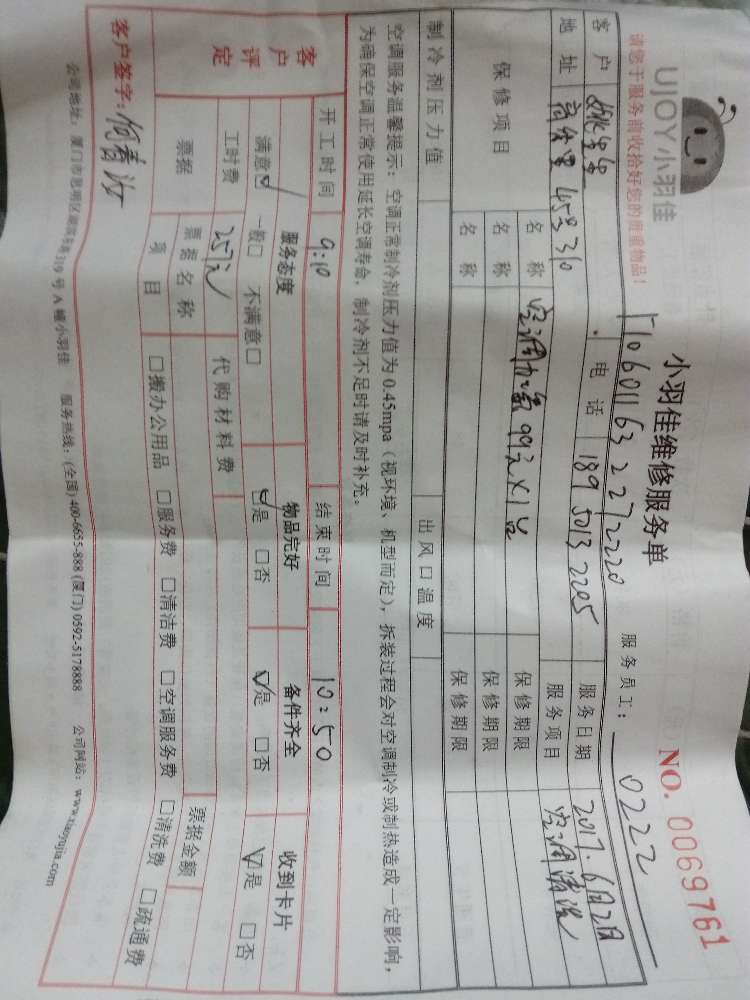 UJOY小羽佳
小羽佳维修服务单
NO. 0069761
请您于服务前收拾好您的贵重物品!
17060116322722220
服务员工: 0222
客户 电话 189 5013 2205 服务日期 2017.6月2日
地址 45号310 服务项目 空调清洗
保修项目 名称 空调加氟99元×1台 保修期限
名称 保修期限
名称 保修期限
制冷剂压力值 出风口温度
空调服务温馨提示: 空调正常制冷剂压力值为0.45mpa (视环境、机型而定), 拆装过程会对空调制冷或制热造成一定影响,
为确保空调正常使用延长空调寿命, 制冷剂不足时请及时补充。
开工时间 9:10 结束时间 10:50
客户评定 服务态度 物品完好 备件齐全 收到卡片
满意☑ 一般□ 不满意□ ☑是 □否 ☑是 □否 ☑是 □否
工时费 257元 代购材料费
票据 票据名称 票据金额
项目 □搬办公用品 □服务费 □清洁费 □空调服务费 □清洗费 □疏通费
客户签字:
公司地址: 厦门市思明区湖滨东路319号A幢小羽佳 服务热线: (全国) 400-6655-888 (厦门) 0592-5178888 公司网站: www.xiaoyujia.com